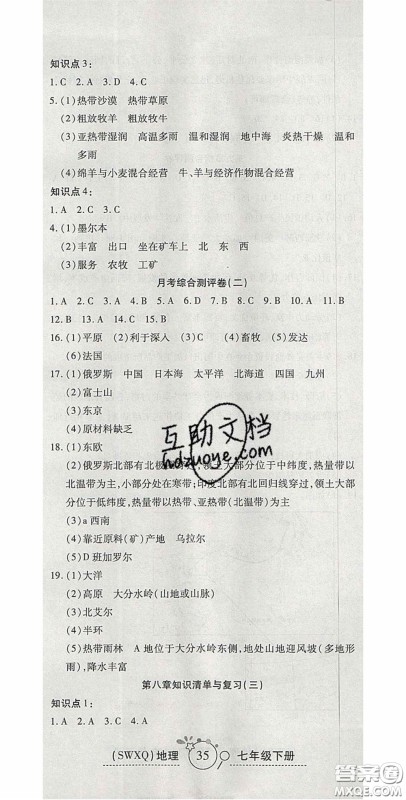 知识点3:
1. C  2. A  3. D  4. C
5. (1)热带沙漠  热带草原
(2)粗放牧羊  粗放牧牛
(3)亚热带湿润  高温多雨  温和湿润  地中海  炎热干燥  温和
多雨
(4)绵羊与小麦混合经营  牛、羊与经济作物混合经营
知识点4:
1. A  2. C  3. C
4. (1)墨尔本
(2)丰富  出口  坐在矿车上  北  东  西
(3)服务  农牧  工矿
月考综合测评卷(二)
1. A  2. B  3. C  4. D  5. B  6. D  7. B  8. C  9. B  10. A  11. B
12. B  13. B  14. C  15. B
16. (1)平原  (2)利于深入  (3)C  (4)畜牧  (5)发达
(6)法国
17. (1)俄罗斯  中国  日本海  太平洋  北海道  四国  九州
(2)富士山
(3)东京
(4)原材料缺乏
18. (1)东欧
(2)俄罗斯北部有北极圈穿过,领土大部分位于中纬度,热量带以
北温带为主,小部分处在寒带;印度北部有北回归线穿过,领土大部
分位于低纬度,热量带以热带、亚热带(北温带)为主
(3)a 西南
(4)靠近原料(矿)产地  乌拉尔
(5)D 班加罗尔
19. (1)大洋
(2)高原  大分水岭(山地或山脉)
(3)北艾尔
(4)半环
(5)热带雨林  A地位于大分水岭东侧,地处山地迎风坡(多地形
雨),降水丰富
第八章知识清单与复习(三)
知识点1:
1. C  2. A  3. C  4. A
(SWXQ)地理  35  七年级下册
互助文档
hdzuoye.com
答案圈
MXQE.COM